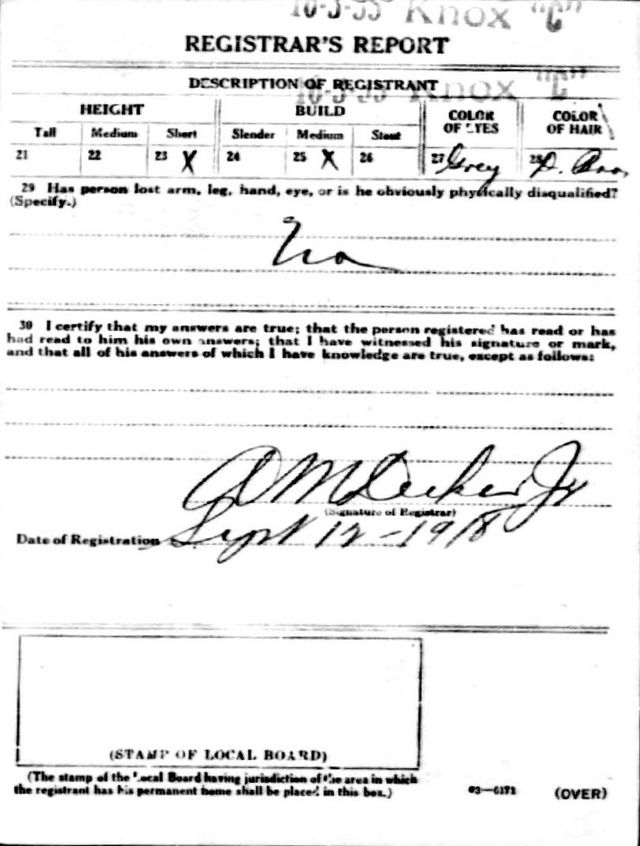 10-3-55 Knox "C"
REGISTRAR'S REPORT
DESCRIPTION OF REGISTRANT
10-3-55 Knox "C"
HEIGHT BUILD COLOR OF EYES COLOR OF HAIR
Tall Medium Short Slender Medium Stout
21 22 23 X 24 25 X 26 27 Grey 28 D.
29 Has person lost arm, leg, hand, eye, or is he obviously physically disqualified?
(Specify.)
No
30 I certify that my answers are true; that the person registered has read or has
had read to him his own answers; that I have witnessed his signature or mark,
and that all of his answers of which I have knowledge are true, except as follows:
Decker Jr
(Signature of Registrar)
Date of Registration Sept 12-1918
(STAMP OF LOCAL BOARD)
(The stamp of the Local Board having jurisdiction of the area in which
the registrant has his permanent home shall be placed in this box.)
03-6171 (OVER)